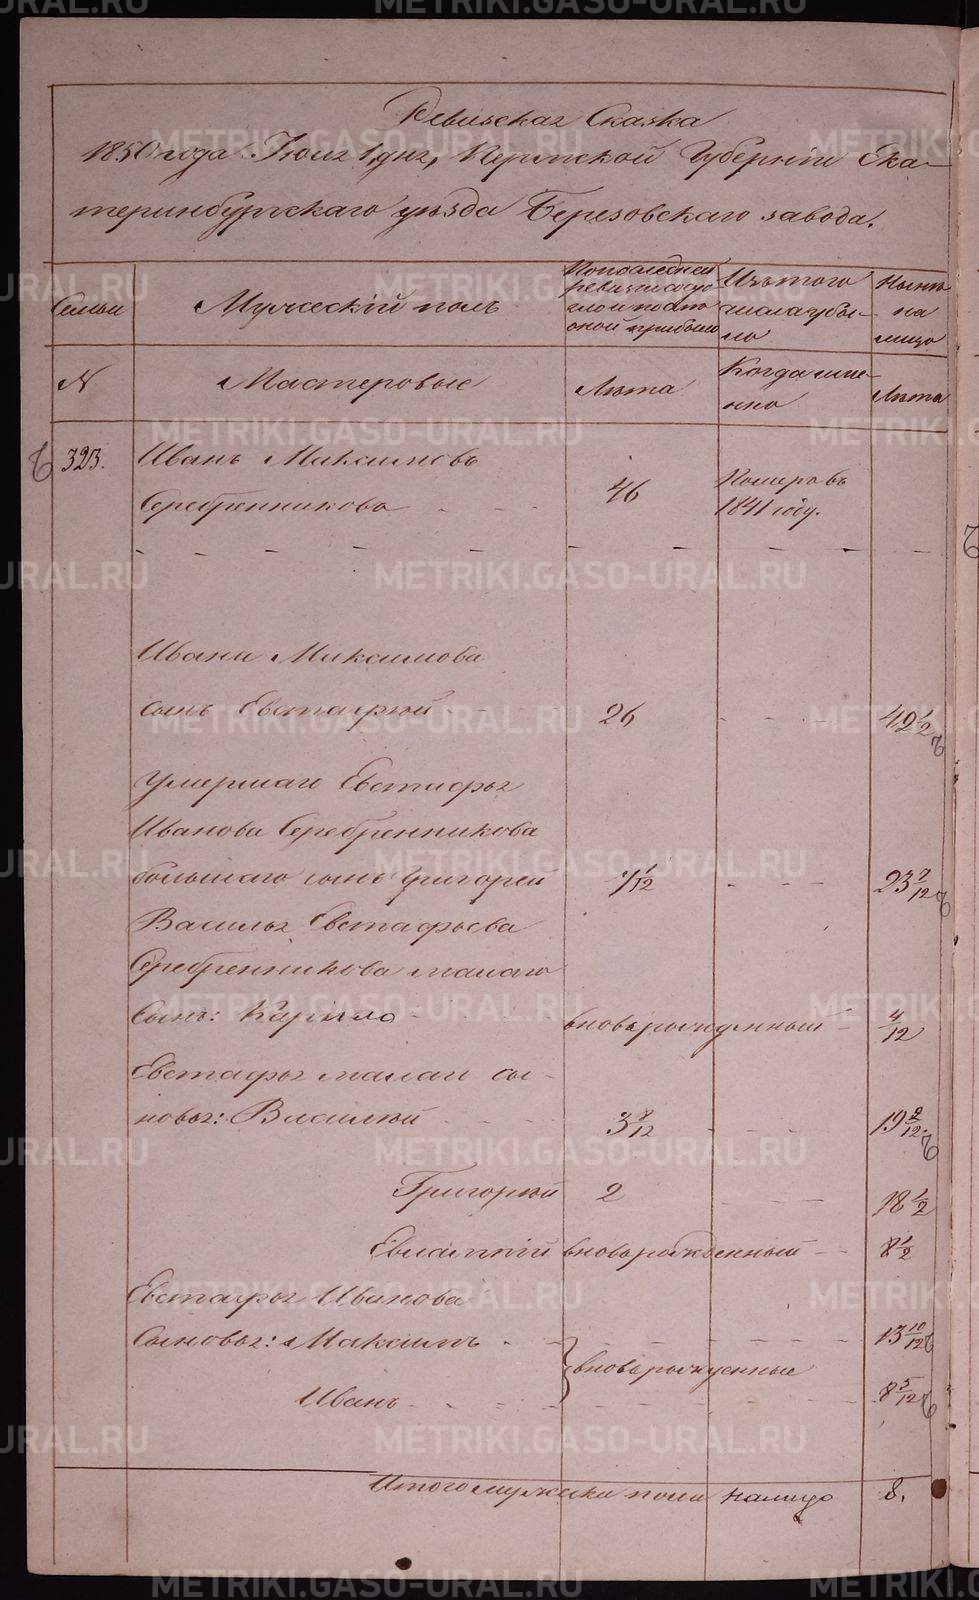 Ревизская Сказка
1850 года Июля 1 дня, Пермской Губернiи Ека-
теринбургскаго уѣзда Березовскаго завода.
Семьи
Мужескiй полъ
По последней
ревизiи состо
яло и после
оной прибыло
Изъ того
числа убы-
ло
Нынѣ
на
лицо
N
Мастеровые
Лѣта
Когда име-
нно
Лѣта
323.
Иванъ Максимовъ
Серебренниковъ
46
Померъ въ
1841 году.
Ивана Максимова
сынъ Евстафей
26
42 1/2
Умершаго Евстафья
Иванова Серебренникова
большаго сынъ Григорей
7 1/12
23 7/12
Василья Евстафьева
Серебренникова малаго
Сынъ: Кирило
вновьрожденный
4/12
Евстафья малаго сы-
новья: Василiй
3 8/12
19 2/12
Григорiй
2
18 1/2
Евлампiй вновьрожденный
8 1/2
Евстафья Иванова
Сыновья: Максимъ
13 10/12
вновьрожденные
Иванъ
8 5/12
Итого мужеска пола налицо
8.
METRIKI.GASO-URAL.RU